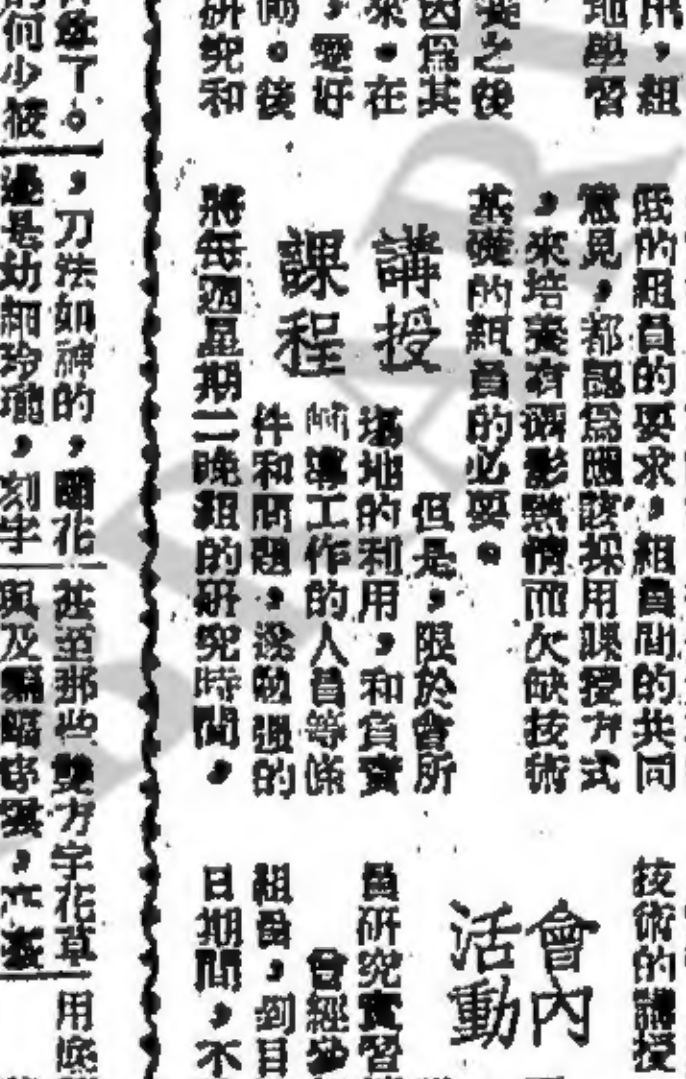 用，組
地學習
之後
因爲其
來。在
，愛好
。後
研究和
底的組員的要求，組員間的共同
意見，都認爲應該採用課授方式
，來培養有攝影熱情而欠缺技術
基礎的組員的必要。
講授
課程
但是，限於會所
場地的利用，和負責
輔導工作的人員等條
件和問題，勉強的
將每週星期二晚組的研究時間，
技術的講授
會內
活動
員研究實習
曾經參
組員，到目
日期間，不
了。
的何少
，刀法如神的，花
是幼細玲瓏，刻字
甚至那些雙方字花草
以及
用